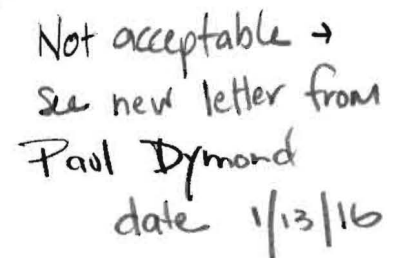 Not acceptable →
See new letter from
Paul Dymond
date 1/13/16